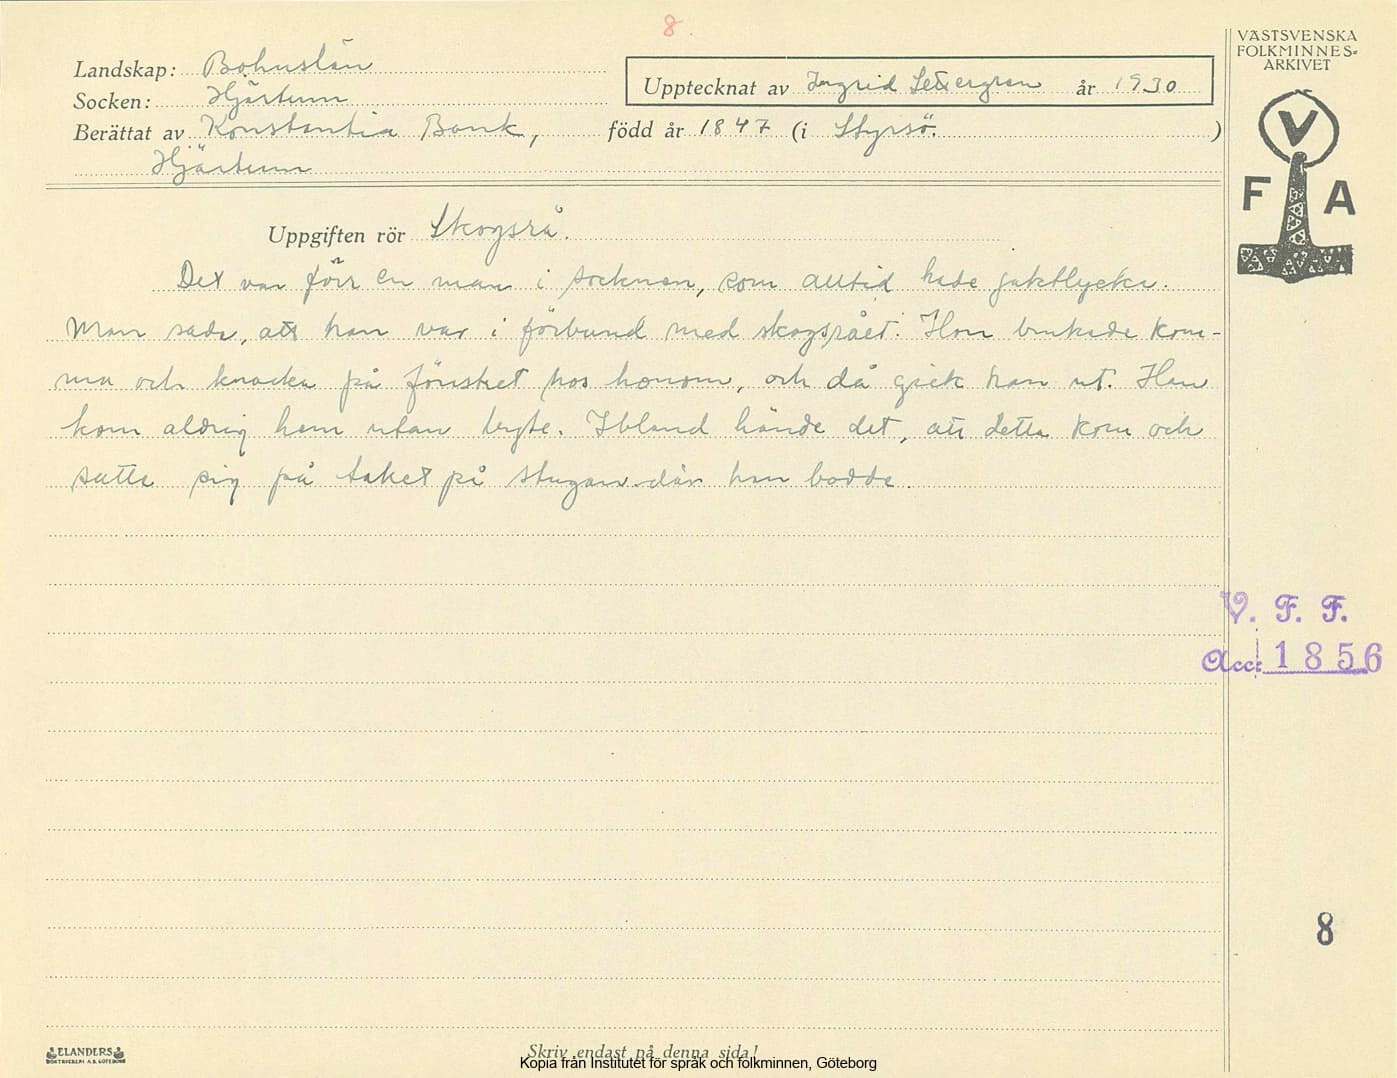 8.
Landskap: Bohuslän
Socken: Hjärtum
Upptecknat av Ingrid Settergren år 1930
Berättat av Konstantia Bank, född år 1847 (i Styrsö.)
Hjärtum
VÄSTSVENSKA
FOLKMINNES-
ARKIVET
V
F A
Uppgiften rör Skogsrå.
Det var förr en man i socknen, som alltid hade jaktlycka.
Man sade, att han var i förbund med skogsrået. Hon brukade kom-
ma och knacka på fönstret hos honom, och då gick han ut. Han
kom aldrig hem utan byte. Ibland hände det, att detta kom och
satte sig på taket på stugan där han bodde.
V. F. F.
Acc: 1856
8
ELANDERS
BOKTRYCKERI A.B. GÖTEBORG
Skriv endast på denna sida!
Kopia från Institutet för språk och folkminnen, Göteborg